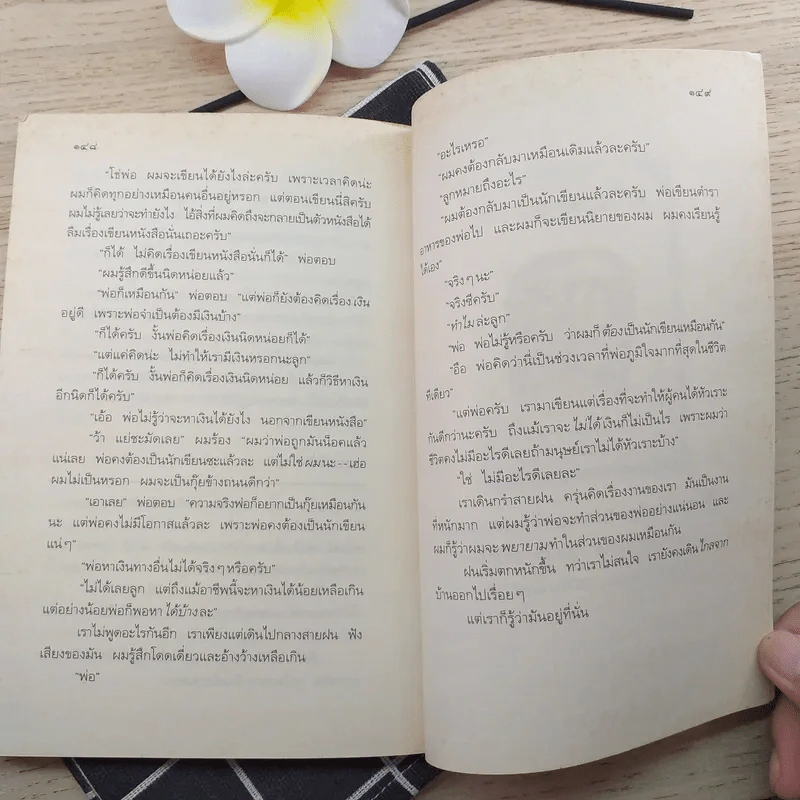 ๑๔๘
“โธ่พ่อ ผมจะเขียนได้ยังไงล่ะครับ เพราะเวลาคิดน่ะ
ผมก็คิดทุกอย่างเหมือนคนอื่นอยู่หรอก แต่ตอนเขียนนี่สิครับ
ผมไม่รู้เลยว่าจะทำยังไง ไอ้สิ่งที่ผมคิดถึงจะกลายเป็นตัวหนังสือได้
ลืมเรื่องเขียนหนังสือนั่นเถอะครับ”
“ก็ได้ ไม่คิดเรื่องเขียนหนังสือนั่นก็ได้” พ่อตอบ
“ผมรู้สึกดีขึ้นนิดหน่อยแล้ว”
“พ่อก็เหมือนกัน” พ่อตอบ “แต่พ่อก็ยังต้องคิดเรื่องเงิน
อยู่ดี เพราะพ่อจำเป็นต้องมีเงินบ้าง”
“ก็ได้ครับ งั้นพ่อคิดเรื่องเงินนิดหน่อยก็ได้”
“แต่แค่คิดน่ะ ไม่ทำให้เรามีเงินหรอกนะลูก”
“ก็ได้ครับ งั้นพ่อก็คิดเรื่องเงินนิดหน่อย แล้วก็วิธีหาเงิน
อีกนิดก็ได้ครับ”
“เอ้อ พ่อไม่รู้ว่าจะหาเงินได้ยังไง นอกจากเขียนหนังสือ”
“ว้า แย่ชะมัดเลย” ผมร้อง “ผมว่าพ่อถูกมันน็อคแล้ว
แน่เลย พ่อคงต้องเป็นนักเขียนซะแล้วละ แต่ไม่ใช่ผมนะ--เฮ่อ
ผมไม่เป็นหรอก ผมจะเป็นกุ๊ยข้างถนนดีกว่า”
“เอาเลย” พ่อตอบ “ความจริงพ่อก็อยากเป็นกุ๊ยเหมือนกัน
นะ แต่พ่อคงไม่มีโอกาสแล้วละ เพราะพ่อคงต้องเป็นนักเขียน
แน่ๆ”
“พ่อหาเงินทางอื่นไม่ได้จริงๆหรือครับ”
“ไม่ได้เลยลูก แต่ถึงแม้อาชีพนี้จะหาเงินได้น้อยเหลือเกิน
แต่อย่างน้อยพ่อก็พอหาได้บ้างละ”
เราไม่พูดอะไรกันอีก เราเพียงแต่เดินไปกลางสายฝน ฟัง
เสียงของมัน ผมรู้สึกโดดเดี่ยวและอ้างว้างเหลือเกิน
“พ่อ”
๑๔๙
“อะไรเหรอ”
“ผมคงต้องกลับมาเหมือนเดิมแล้วละครับ”
“ลูกหมายถึงอะไร”
“ผมต้องกลับมาเป็นนักเขียนแล้วละครับ พ่อเขียนตำรา
อาหารของพ่อไป และผมก็จะเขียนนิยายของผม ผมคงเรียนรู้
ได้เอง”
“จริงๆนะ”
“จริงซีครับ”
“ทำไมล่ะลูก”
“พ่อ พ่อไม่รู้หรือครับ ว่าผมก็ต้องเป็นนักเขียนเหมือนกัน”
“อือ พ่อคิดว่านี่เป็นช่วงเวลาที่พ่อภูมิใจมากที่สุดในชีวิต
ทีเดียว”
“แต่พ่อครับ เรามาเขียนแต่เรื่องที่จะทำให้ผู้คนได้หัวเราะ
กันดีกว่านะครับ ถึงแม้เราจะไม่ได้เงินก็ไม่เป็นไร เพราะผมว่า
ชีวิตคงไม่มีอะไรดีเลยถ้ามนุษย์เราไม่ได้หัวเราะบ้าง”
“ใช่ ไม่มีอะไรดีเลยละ”
เราเดินกรำสายฝน ครุ่นคิดเรื่องงานของเรา มันเป็นงาน
ที่หนักมาก แต่ผมรู้ว่าพ่อจะทำส่วนของพ่ออย่างแน่นอน และ
ผมก็รู้ว่าผมจะพยายามทำในส่วนของผมเหมือนกัน
ฝนเริ่มตกหนักขึ้น ทว่าเราไม่สนใจ เรายังคงเดินไกลจาก
บ้านออกไปเรื่อยๆ
แต่เราก็รู้ว่ามันอยู่ที่นั่น